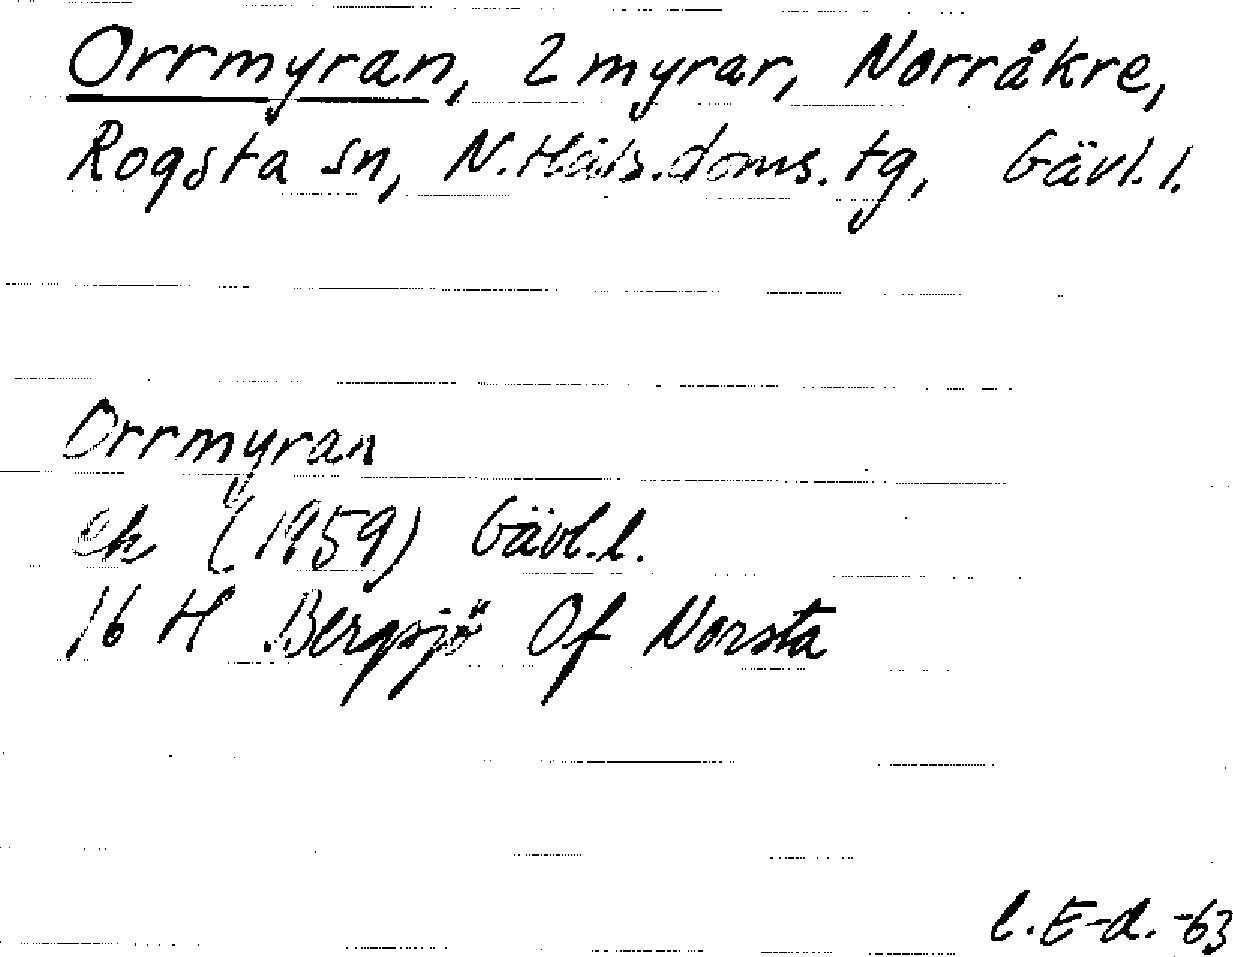 Orrmyran, 2 myrar, Norråkre,
Rogsta sn, N.Häls.doms.tg, Gävl.l.
Orrmyran
ek (1959) Gävl.l.
16 H Bergsjö Of Norsta
l.E-d.-63